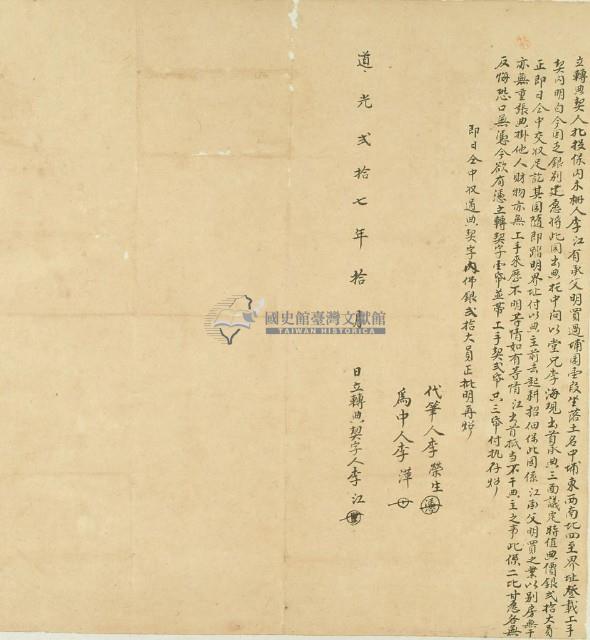 立轉典契人北投保內木柵人李江有承父明買過埔園壹段坐落土名中埔東西南北四至界址登載上手
契內明白今因乏銀別建愿將此園出典托中問以堂兄李海現出首承典三面議定時值典價銀弍拾大員
正即日仝中交収足訖其園隨即踏明界址付以典主前去起耕招佃保此園係江承父明買之業以別房無干
亦無重張典掛他人財物亦無上手來歷不明等情如有等情江出首抵當不干典主之事此係二比甘愿各無
反悔恐口無憑今欲有憑立轉契字壹帋並帶上手契弍帋共三帋付执存炤
即日仝中収過典契字內佛銀弍拾大員正批明再炤
代筆人李榮生
為中人李萍
道光弍拾七年拾月
日立轉典契字人李江
國史館臺灣文獻館
TAIWAN HISTORICA